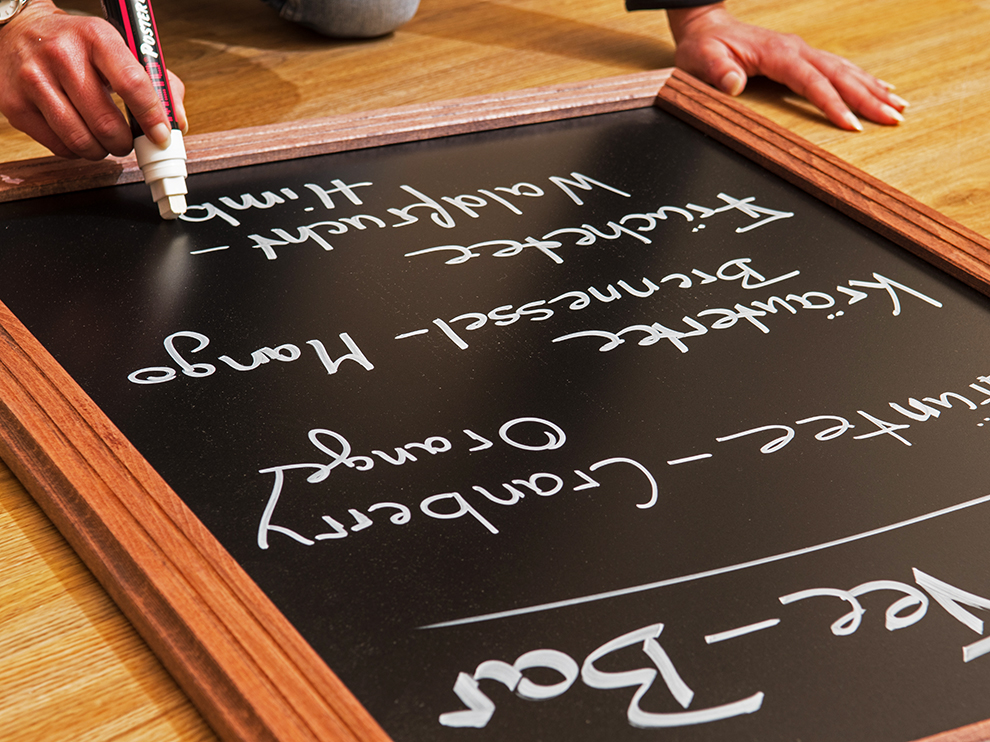 Tee - Bar
rüntee - Cranberry
Orange
Kräutertee
Brennessel - Mango
Früchtetee
Waldfrucht -
Himb